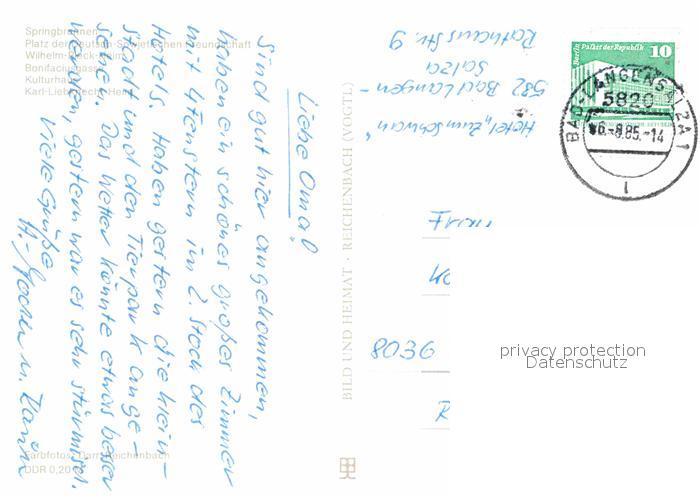 Springbrunnen
Platz der Deutsch-Sowjetischen Freundschaft
Wilhelm-Pieck-
Bonifaciusgasse
Kulturhaus
Karl-Liebknecht-Heim
Liebe Oma!
Sind gut hier angekommen,
haben ein schönes großes Zimmer
mit 4 Fenstern im 2. Stock des
Hotels. Haben gestern die klein-
Stadt und den Tierpark ange-
sehen. Das Wetter könnte etwas besser
werden, gestern war es sehr stürmisch.
Viele Grüße
u.
Farbfotos: Darr, Reichenbach
DDR 0,20
BILD UND HEIMAT · REICHENBACH (VOGTL)
Hotel „Zum Schwan"
582 Bad Langen-
Salza
Rathausstr. 9
Berlin, Palast der Republik
10
BAD-LANGENSALZA 1
5820
-6.-8.85.-14
8036
privacy protection
Datenschutz